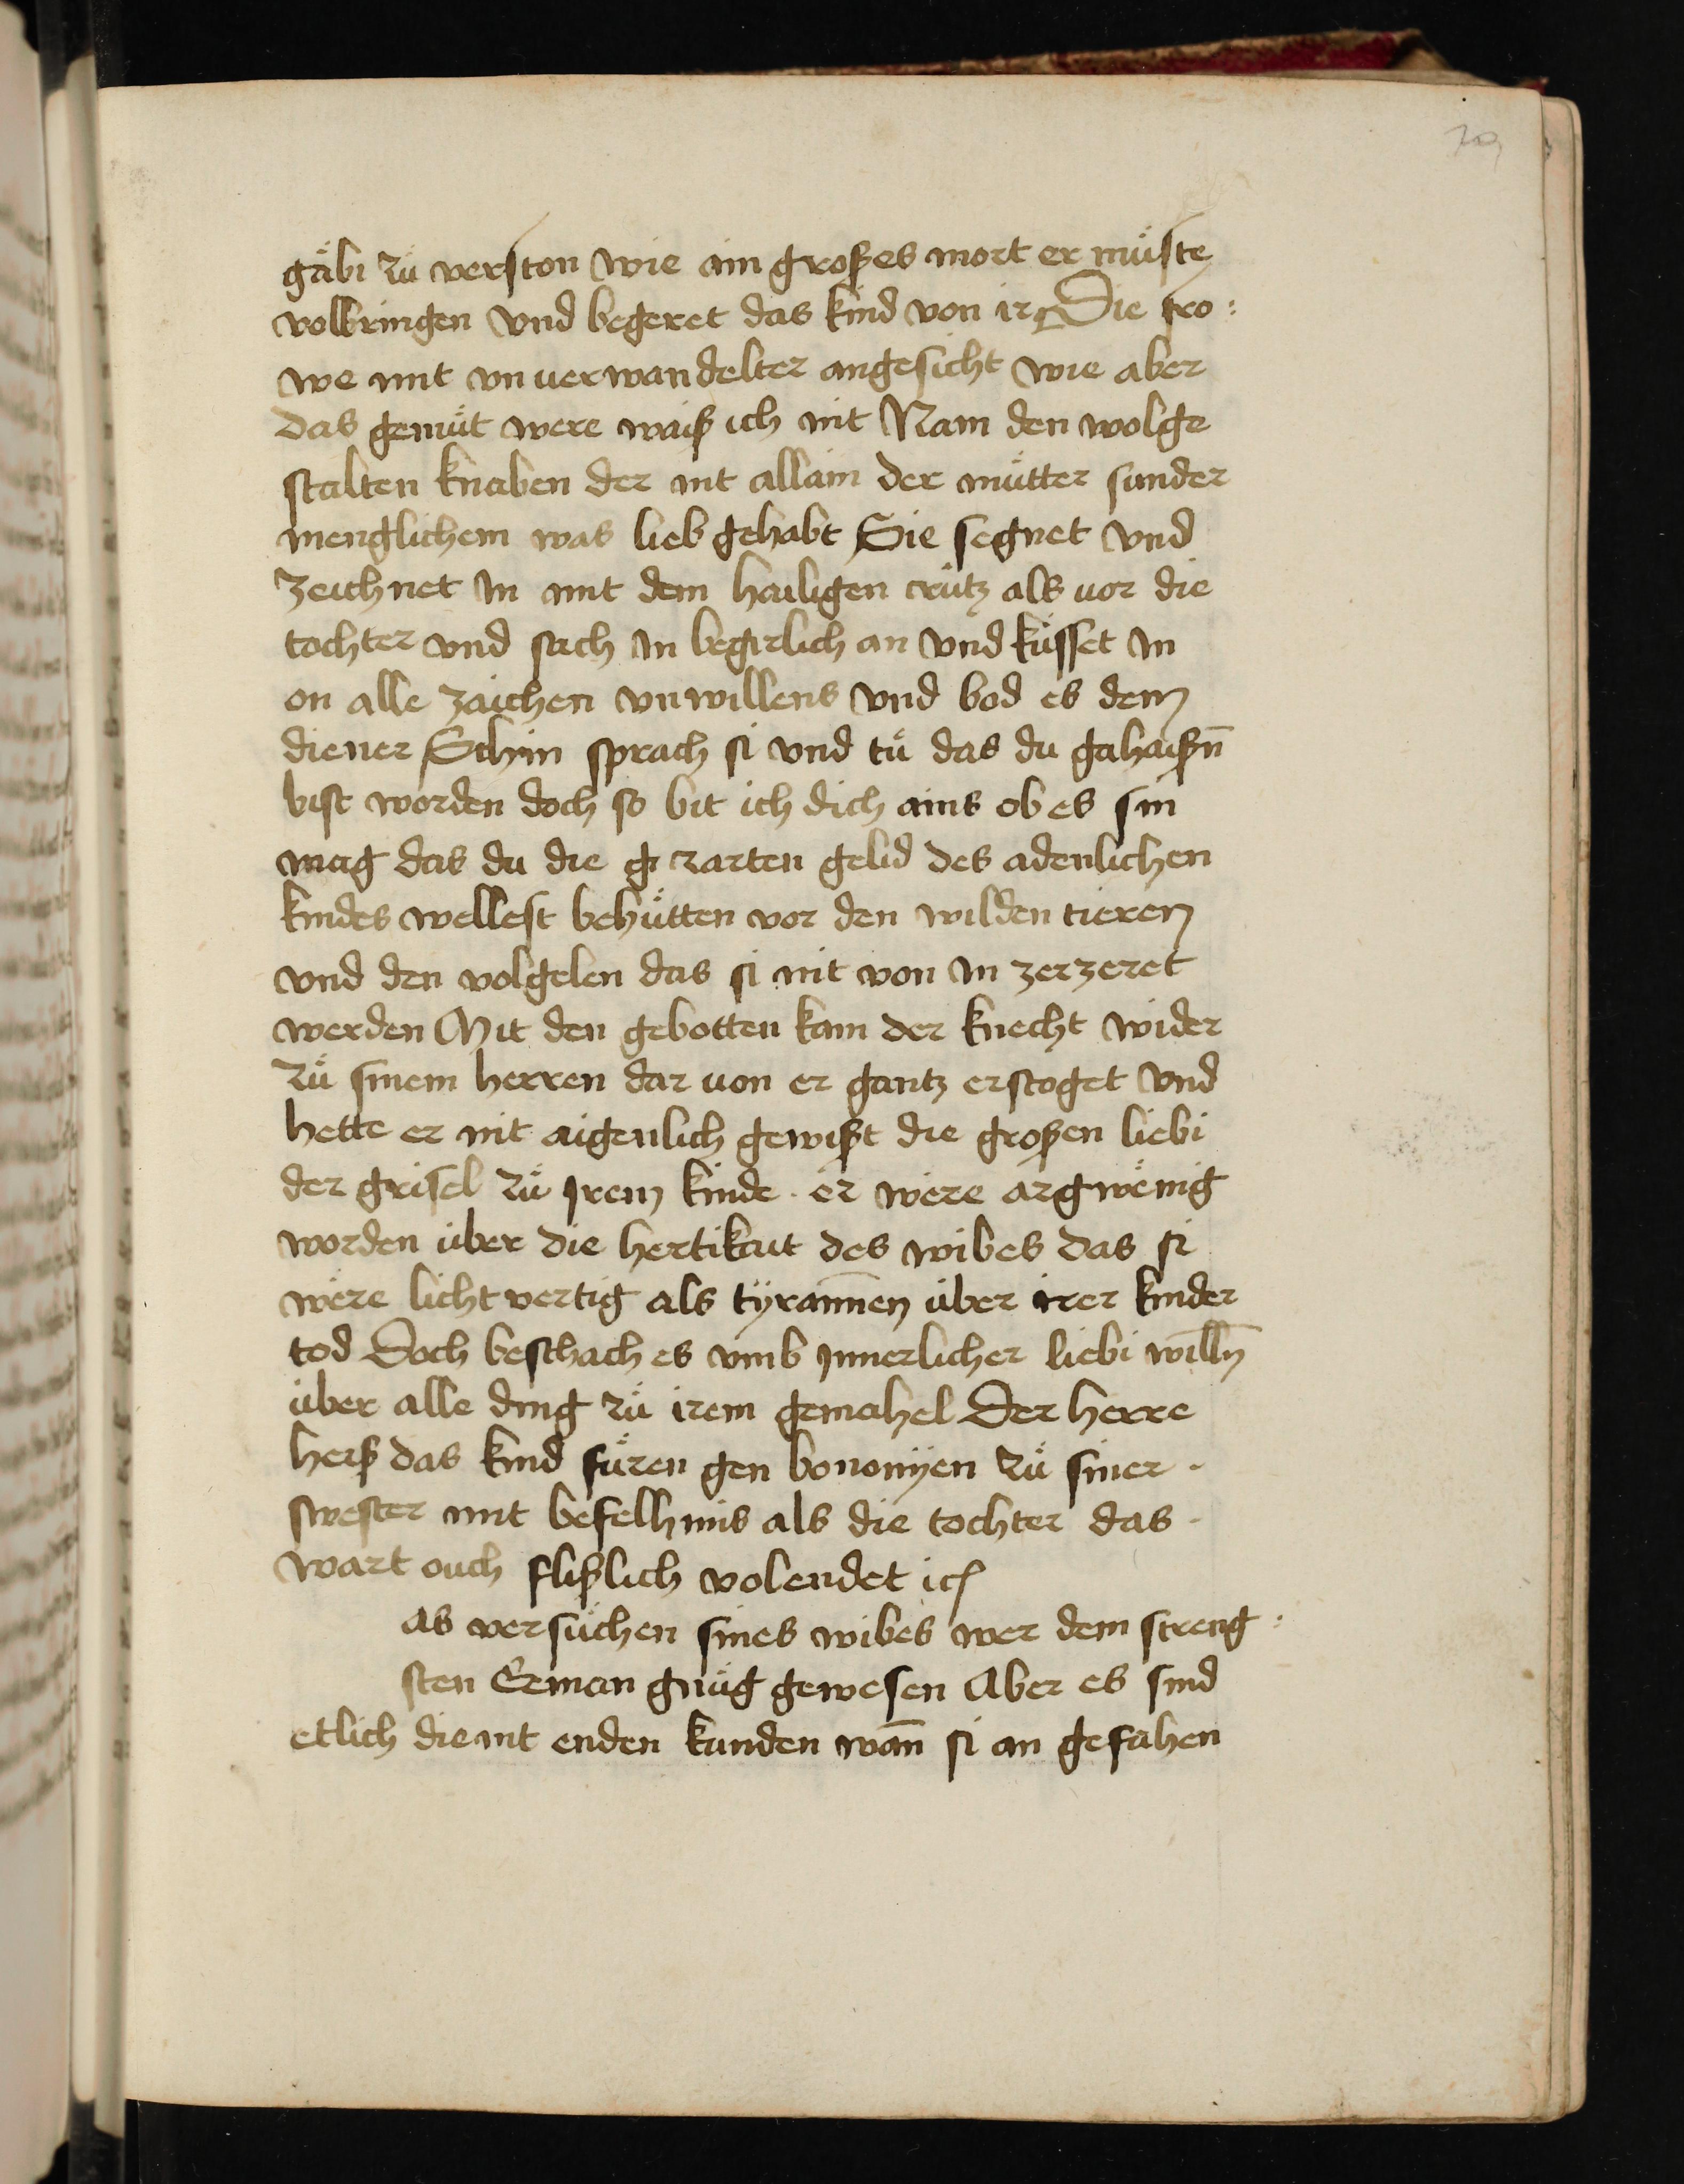 gäbi zů verston wie ain großes mort er můste
volbringen vnd begeret das kind von ir Die fro:
we mit vnuerwandelter angesicht wie aber
das gemůt were waiß ich nit Nam den wolge
stalten knaben der nit allain der můtter sunder
menglichem was lieb gehabt Sie segnet vnd
zeichnet in mit dem hailigen crütz als vor die
tochter vnd sach in begirlich an vnd küsset in
on alle zaichen vnwillens vnd bod es dem
diener Se hin sprach si vnd tů das du gahaißn̄
bist worden doch so bit ich dich ains ob es sin
mag das du die g zarten gelid des adenlichen
kindes wellest behůtten vor den wilden tieren
vnd den volgelen das si nit von in zerzeret
werden Mit den gebotten kam der knecht wider
zů sinem herren dar von er gantz erstoget vnd
hette er nit aigenlich gewißt die großen liebi
der grisel zů irem kinde · er were argwenig
worden über die hertikait des wibes das si
were lichtvertig als tÿran̄en über irer kinder
tod Doch beschach es vmb innerlicher liebi willn̄
über alle ding zů irem gemahel Der herre
heiß das kind fůren gen bononÿen zů siner ·
swester mit befelhnis als die tochter das ·
wart ouch flißlich volendet ic
as versůchen sines wibes wer dem streng:
sten Eeman gnůg gewesen Aber es sind
etlich die nit enden kunden wan̄ si an gefahen